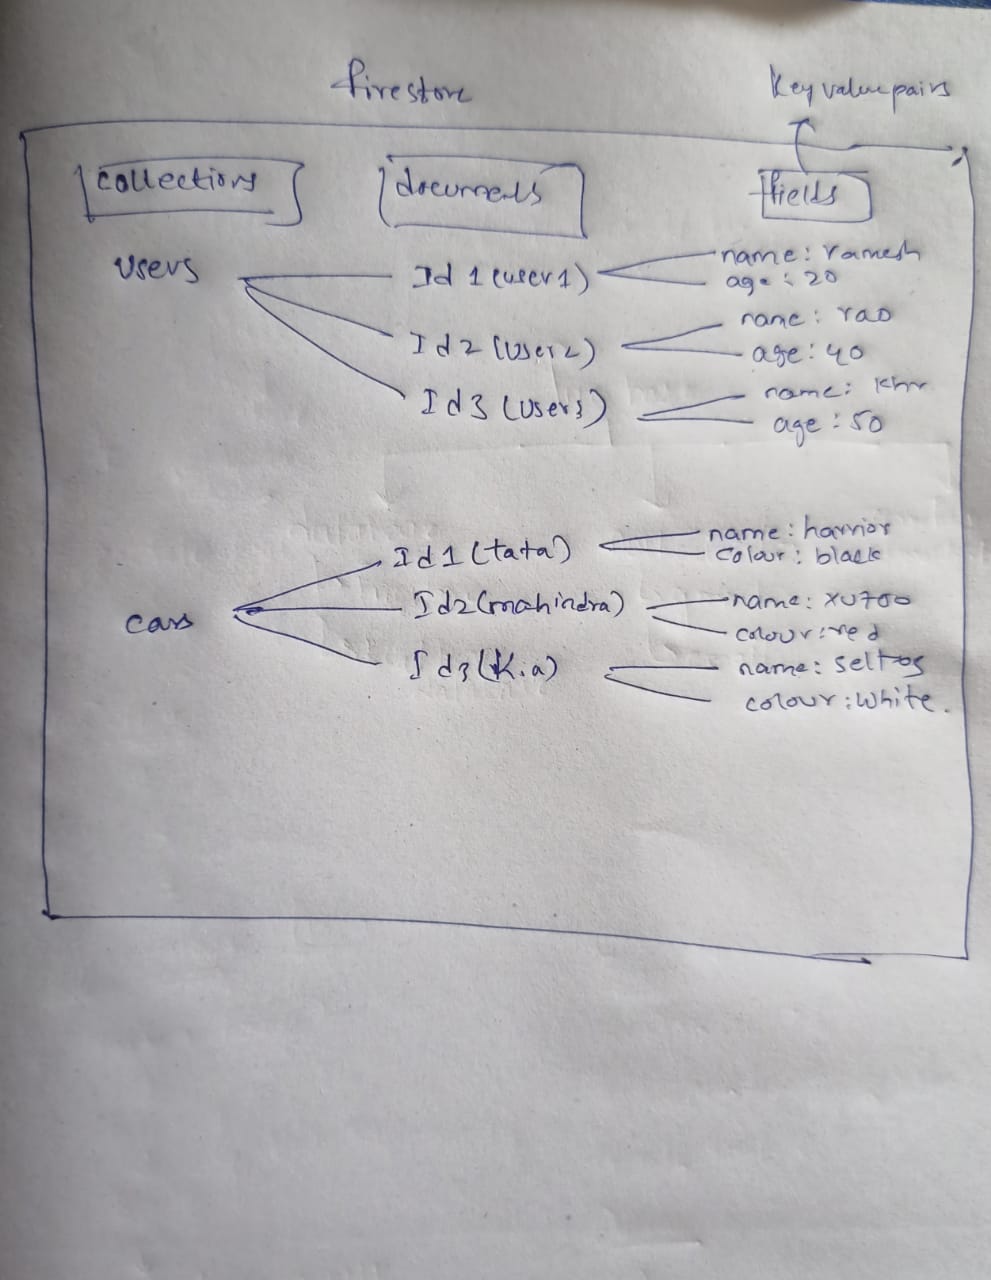 firestore
Key value pairs
collections
documents
fields
users
Id 1 (user 1)
name: ramesh
age: 20
Id 2 (user 2)
name: rao
age: 40
Id 3 (user 3)
name:
age: 50
cars
Id 1 (tata)
name: harrior
colour: black
Id2 (mahindra)
name: XU700
colour: red
Id3 (Kia)
name: seltos
colour: white.